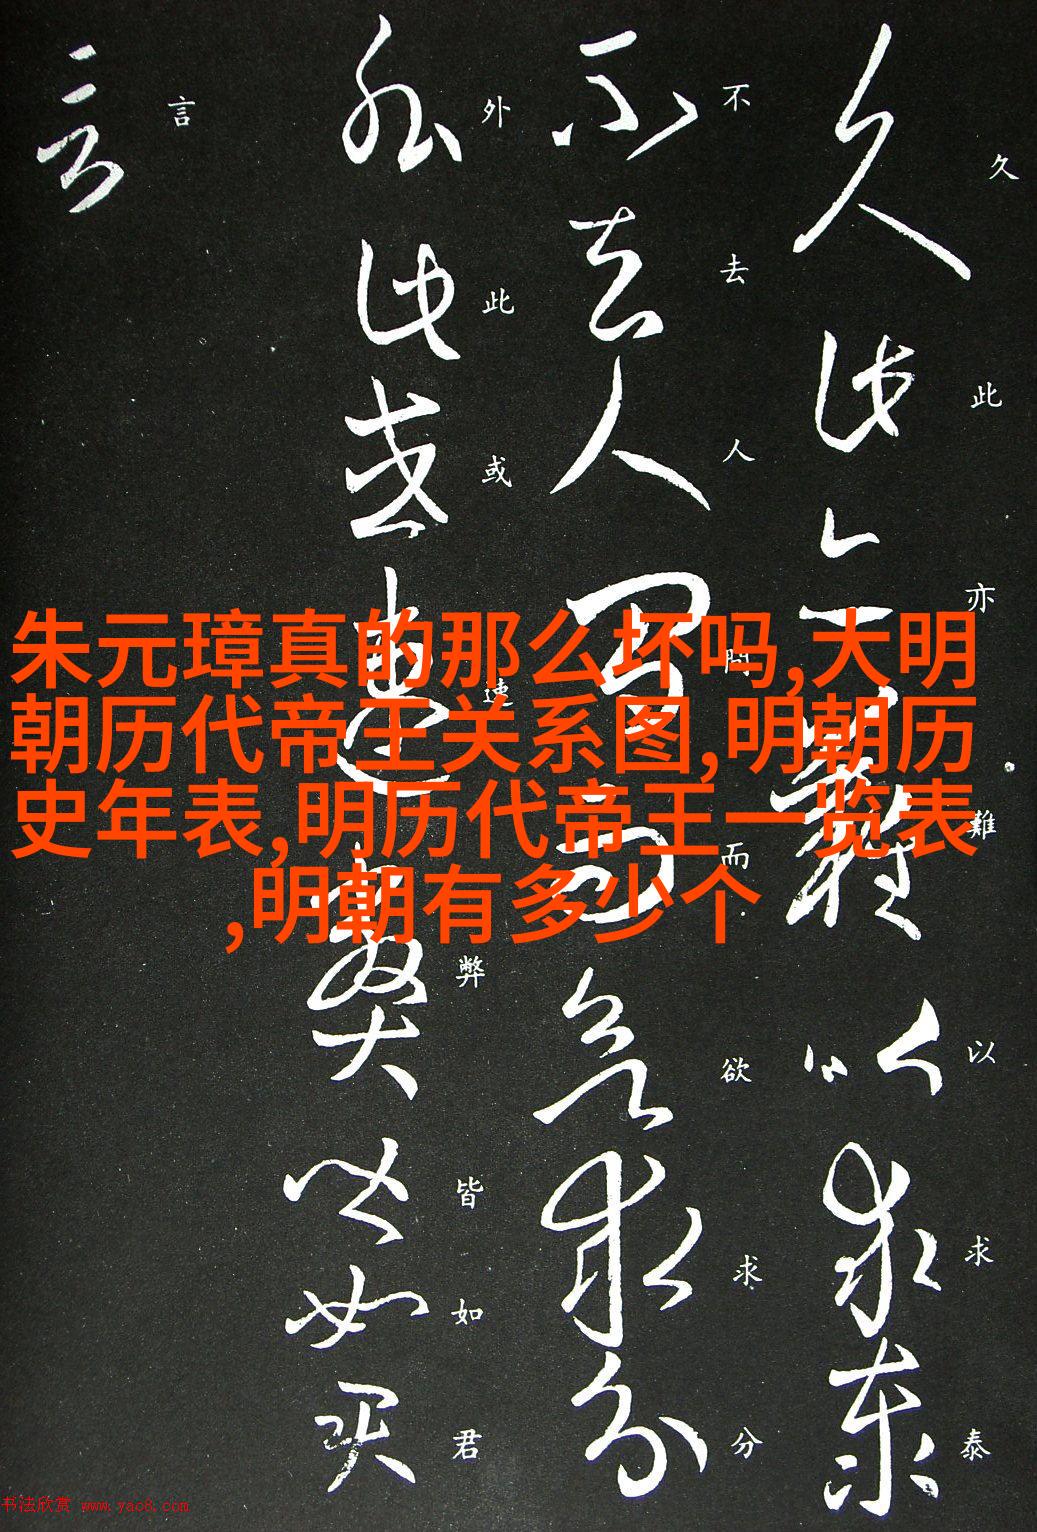 久此亦難以求泰
不去人間而欲求分
外此或速弊皆如君
言
朱元璋真的那么坏吗,大明
朝历代帝王关系图,明朝历
史年表,明历代帝王一览表
,明朝有多少个
书法欣赏 www.yac8.com